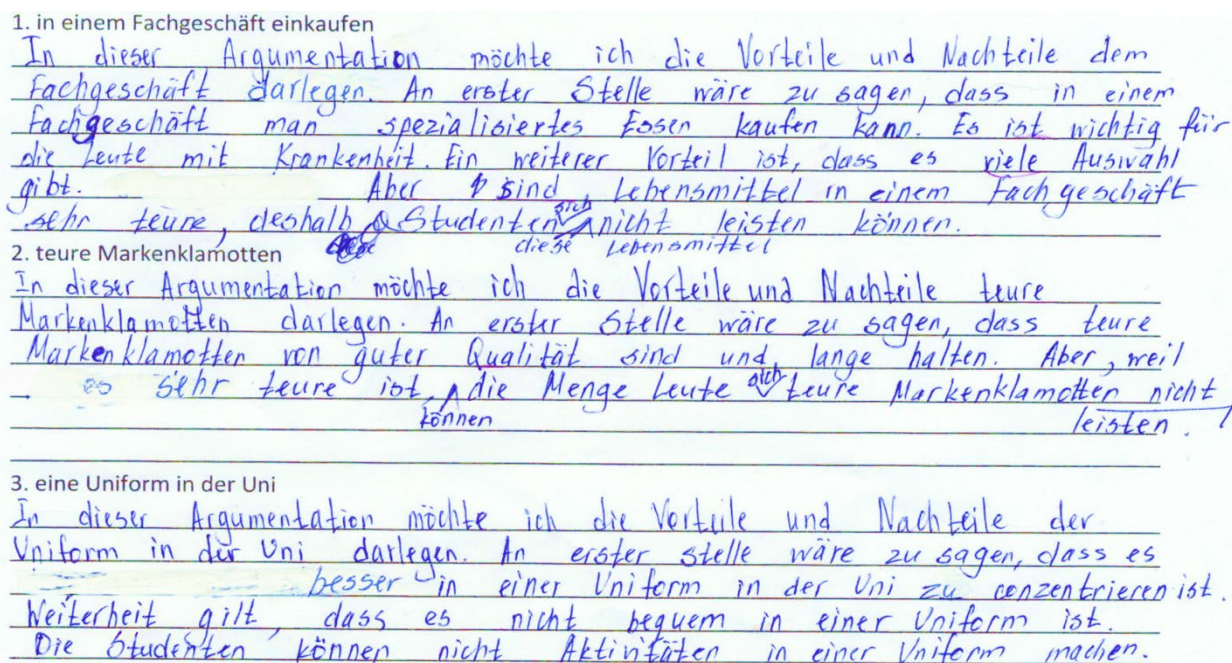 1. in einem Fachgeschäft einkaufen
In dieser Argumentation möchte ich die Vorteile und Nachteile dem
Fachgeschäft darlegen. An erster Stelle wäre zu sagen, dass in einem
Fachgeschäft man spezialisiertes Essen kaufen kann. Es ist wichtig für
die Leute mit Krankenheit. Ein weiterer Vorteil ist, dass es viele Auswahl
gibt. Aber sind Lebensmittel in einem Fachgeschäft
sehr teure, deshalb Studenten sich nicht leisten können.
diese Lebensmittel
2. teure Markenklamotten
In dieser Argumentation möchte ich die Vorteile und Nachteile teure
Markenklamotten darlegen. An erster Stelle wäre zu sagen, dass teure
Markenklamotten von guter Qualität sind und lange halten. Aber, weil
es sehr teure ist, die Menge Leute sich teure Markenklamotten nicht
können leisten.
3. eine Uniform in der Uni
In dieser Argumentation möchte ich die Vorteile und Nachteile der
Uniform in der Uni darlegen. An erster Stelle wäre zu sagen, dass es
besser in einer Uniform in der Uni zu conzentrieren ist.
Weiterheit gilt, dass es nicht bequem in einer Uniform ist.
Die Studenten können nicht Aktivitäten in einer Uniform machen.